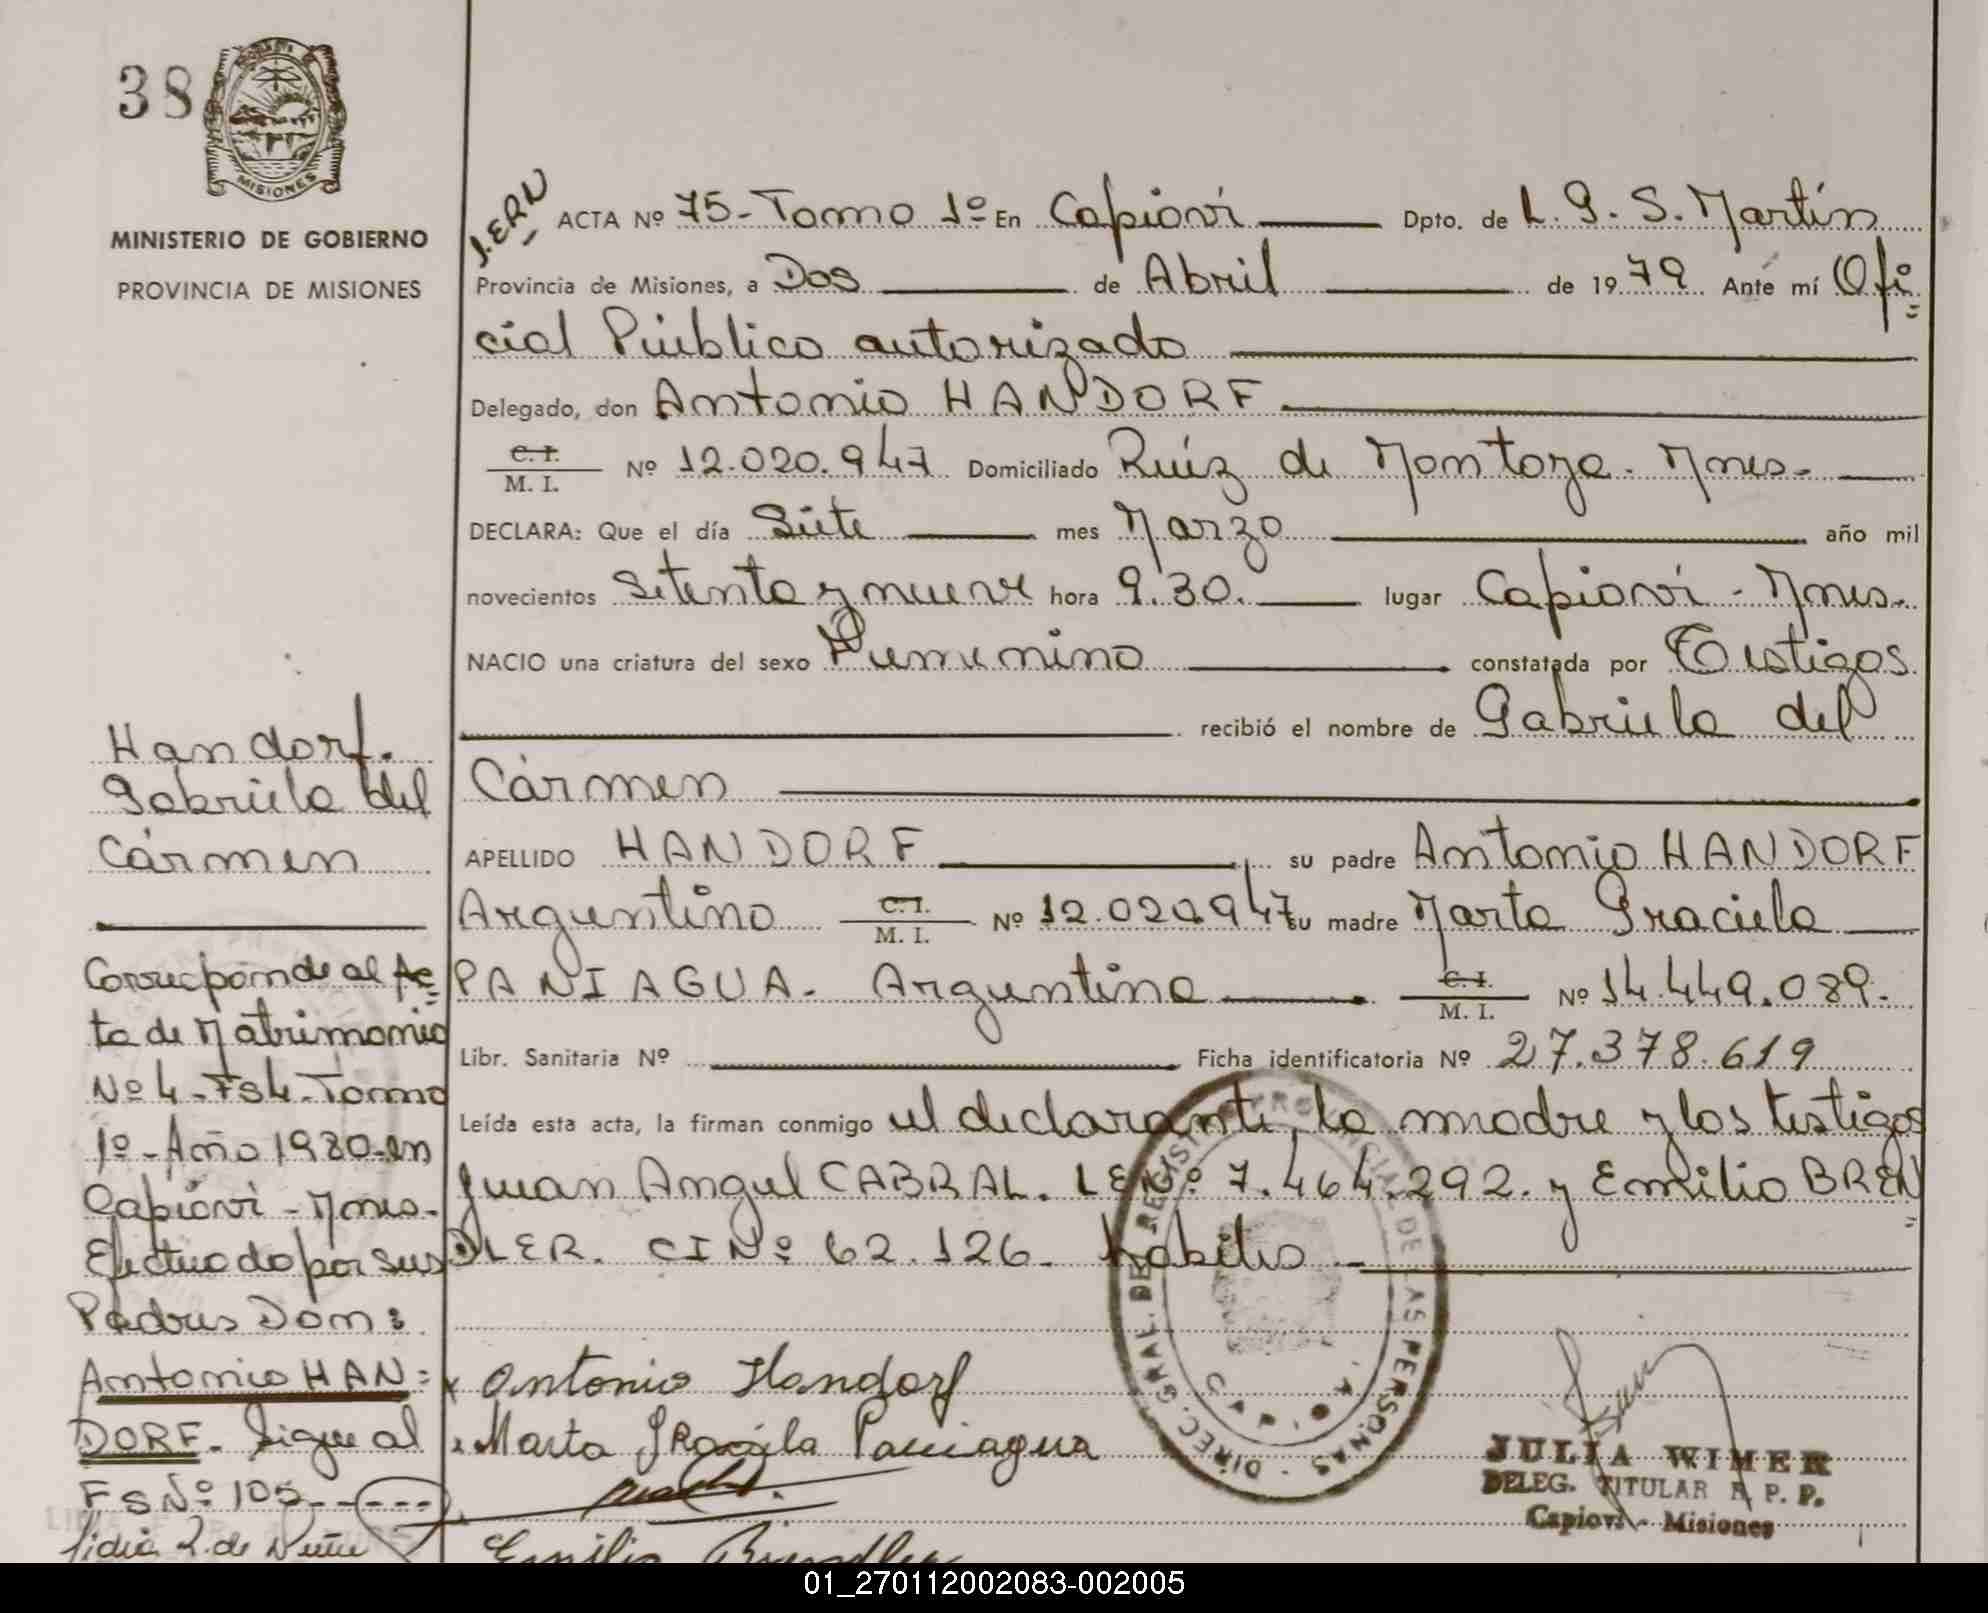 38
MISIONES
MINISTERIO DE GOBIERNO
PROVINCIA DE MISIONES
J.ERN
ACTA Nº 75-Tomo 1º En Capioví Dpto. de L. G. S. Martín
Provincia de Misiones, a Dos de Abril de 1979 Ante mí Ofi=
cial Público autorizado
Delegado, don Antonio HANDORF
C. I.
M. I. Nº 12.020.947 Domiciliado Ruíz de Montoya. Mnes.
DECLARA: Que el día Siete mes Marzo año mil
novecientos Setenta y nueve hora 9.30. lugar Capioví - Mnes.
NACIO una criatura del sexo Femenino constatada por Testigos
recibió el nombre de Gabriela del
Cármen
APELLIDO HANDORF su padre Antonio HANDORF
Argentino C. I. M. I. Nº 12.020.947 su madre Marta Graciela
PANIAGUA. Argentina C. I. M. I. Nº 14.449.089.
Libr. Sanitaria Nº Ficha identificatoria Nº 27.378.619
Leída esta acta, la firman conmigo el declarante, la madre y los testigos
Juan Angel CABRAL. LE Nº 7.464.292. y Emilio BREN=
DLER. CI Nº 62.126. habiles
Antonio Handorf
Marta Graciela Paniagua
Emilio Brendler
Handorf.
Gabriela del
Cármen
Corresponde al Ac=
ta de Matrimonio
Nº 4-Fs4-Tomo
1º-Año 1980-en
Capióví - Mnes-
Efectuado por sus
Padres Dom:
Antonio HAN=
DORF. Sigue al
FSNº 105
Lidia 2. de
DIREC. GRAL. DE REGISTRO PROVINCIAL DE LAS PERSONAS
JULIA WIMER
DELEG. TITULAR R. P. P.
Capioví - Misiones
01_270112002083-002005